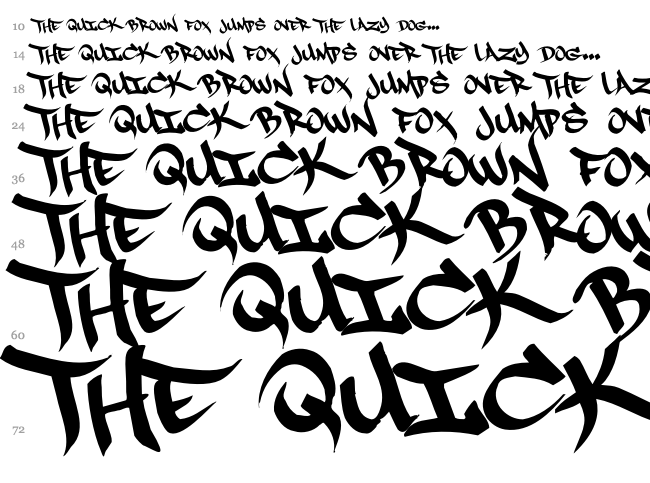 10 THE QUICK BROWN FOX JUMPS OVER THE LAZY DOG...
14 THE QUICK BROWN FOX JUMPS OVER THE LAZY DOG...
18 THE QUICK BROWN FOX JUMPS OVER THE LAZ
24 THE QUICK BROWN FOX JUMPS OV
36 THE QUICK BROWN FOX
48 THE QUICK BROW
60 THE QUICK B
72 THE QUICK